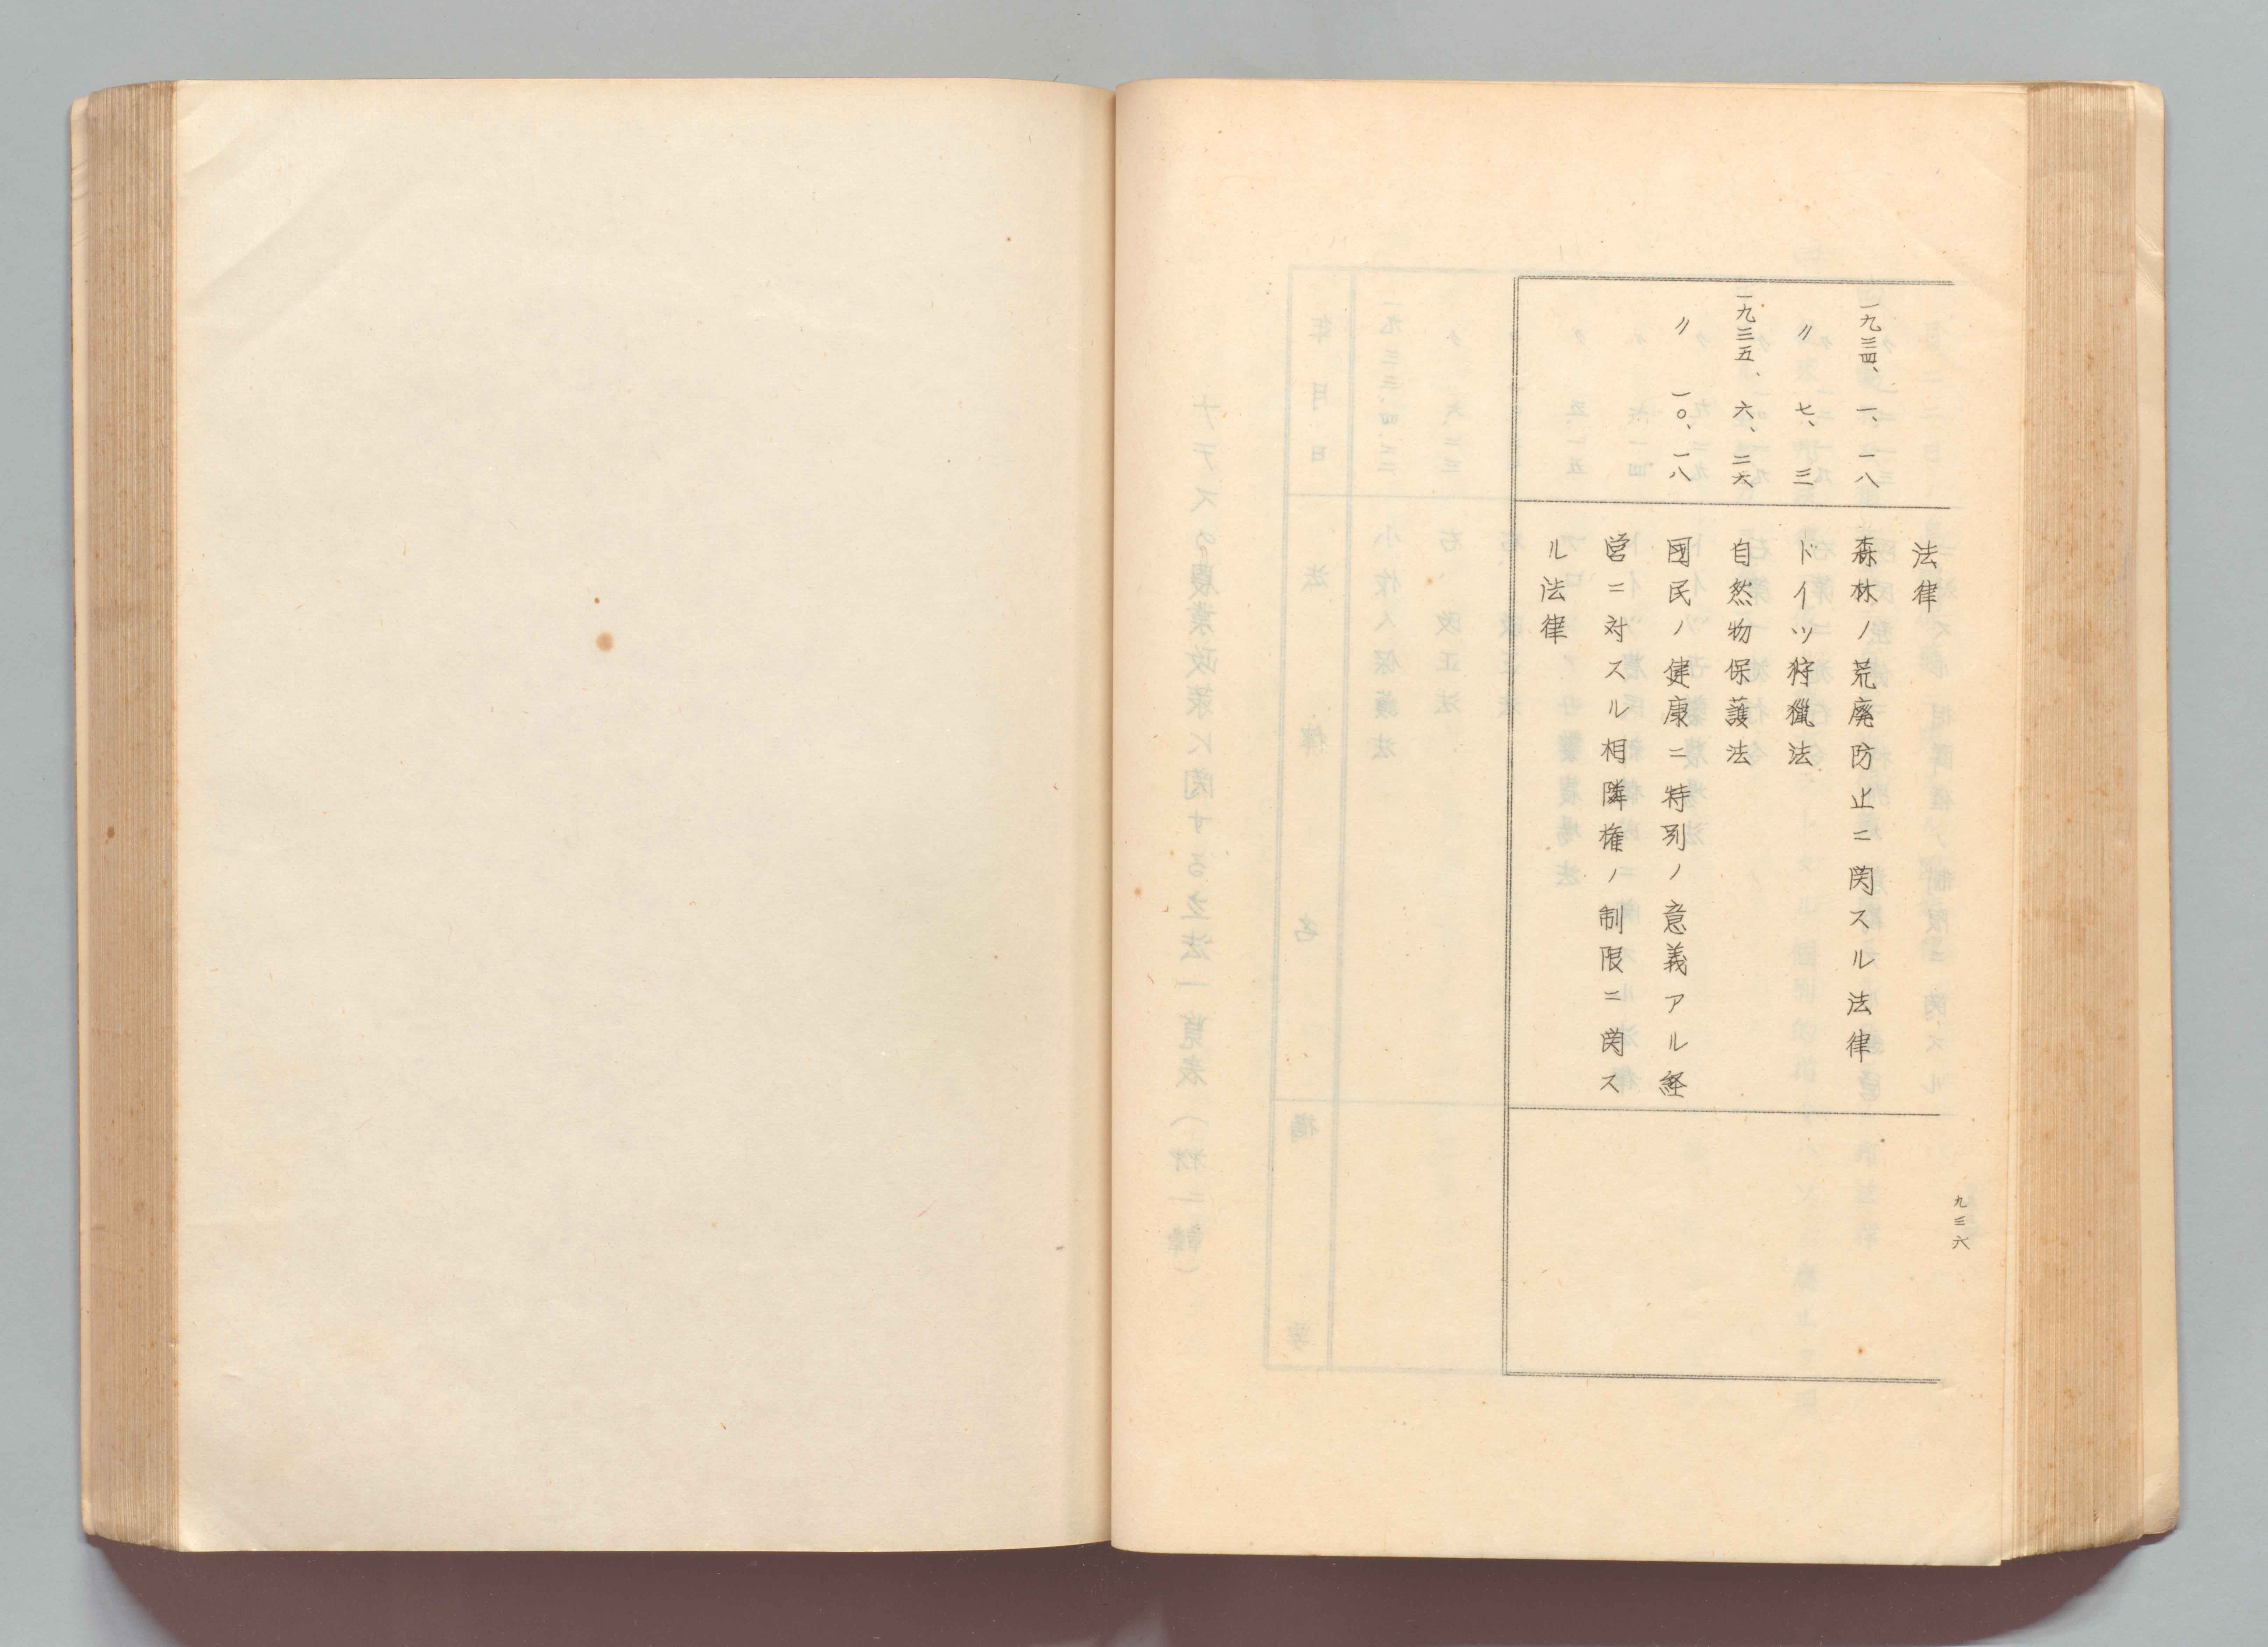 法律
一九三四、一、一八
森林ノ荒廃防止ニ関スル法律
〃 七、三
ドイツ狩猟法
一九三五、六、二六
自然物保護法
〃 一〇、一八
國民ノ健康ニ特別ノ意義アル経
営ニ対スル相隣権ノ制限ニ関ス
ル法律
九三六